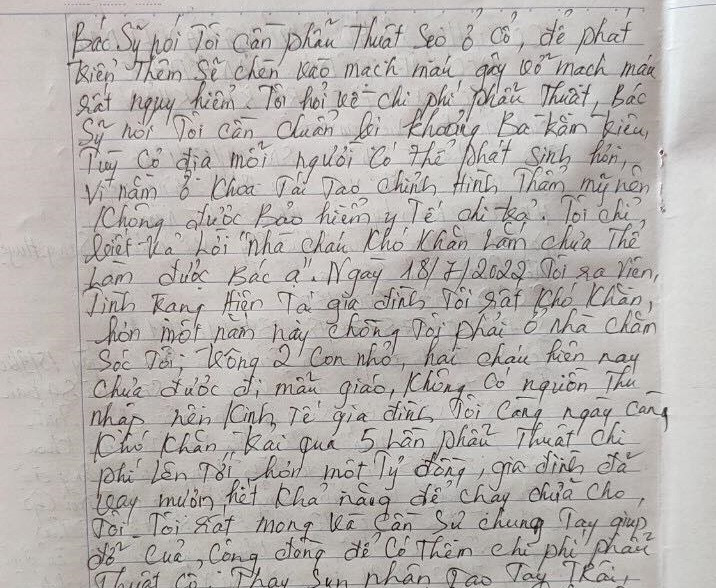 Bác Sỹ nói Tôi cần phẫu Thuật Sẹo ở cổ, để phát
triển Thêm Sẽ chèn vào mạch máu gây vỡ mạch máu
rất nguy hiểm. Tôi hỏi về chi phí phẫu Thuật, Bác
Sỹ nói Tôi cần chuẩn bị khoảng Ba trăm triệu,
Tùy cơ địa mỗi người Có thể phát sinh hơn,
Vì nằm ở Khoa Tái Tạo chỉnh Hình Thẩm mỹ nên
Không được Bảo hiểm y Tế chi trả. Tôi chỉ
biết trả Lời "nhà cháu Khó Khăn Lắm chưa Thể
Làm được Bác ạ". Ngày 18/7/2022 Tôi ra viện,
Tình trạng Hiện Tại gia đình Tôi rất Khó Khăn,
hơn một năm nay chồng Tôi phải ở nhà chăm
Sóc Tôi, trông 2 Con nhỏ, hai cháu hiện nay
chưa được đi mẫu giáo, Không Có nguồn Thu
nhập nên Kinh Tế gia đình Tôi Càng ngày Càng
Khó Khăn, trải qua 5 Lần phẫu Thuật chi
phí Lên Tới hơn một Tỷ đồng, gia đình đã
vay mượn hết Khả năng để chạy chữa cho
Tôi. Tôi rất mong và Cần Sự chung Tay giúp
đỡ Của Cộng đồng để Có Thêm chi phí phẫu
Thuật Cổ, Thay Sụn nhân Tạo Tay Trái,